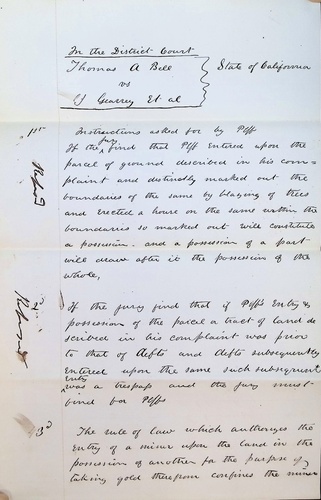 In the District Court
Thomas A Bell
State of California
vs
Et al
1st
Instructions asked for by Plff
If the jury find that Plff Entered upon the
parcel of ground described in his com-
plaint and distinctly marked out the
boundaries of the same by blazing of trees
and Erected a house on the same within the
boundaries so marked out will constitute
a possession - and a possession of a part
will draw after it the possession of the
whole,
Refused
2
If the jury find that if Plffs Entry &
possession of the parcel a tract of land de
scribed in his complaint was prior
to that of defts and defts subsequently
Entered upon the same such subsequent
entry
was a trespass and the jury must
find for Plffs
Refused
3d
The rule of law which authorizes the
Entry of a miner upon the land in the
possession of another for the purpose of
taking gold therefrom confines the miner